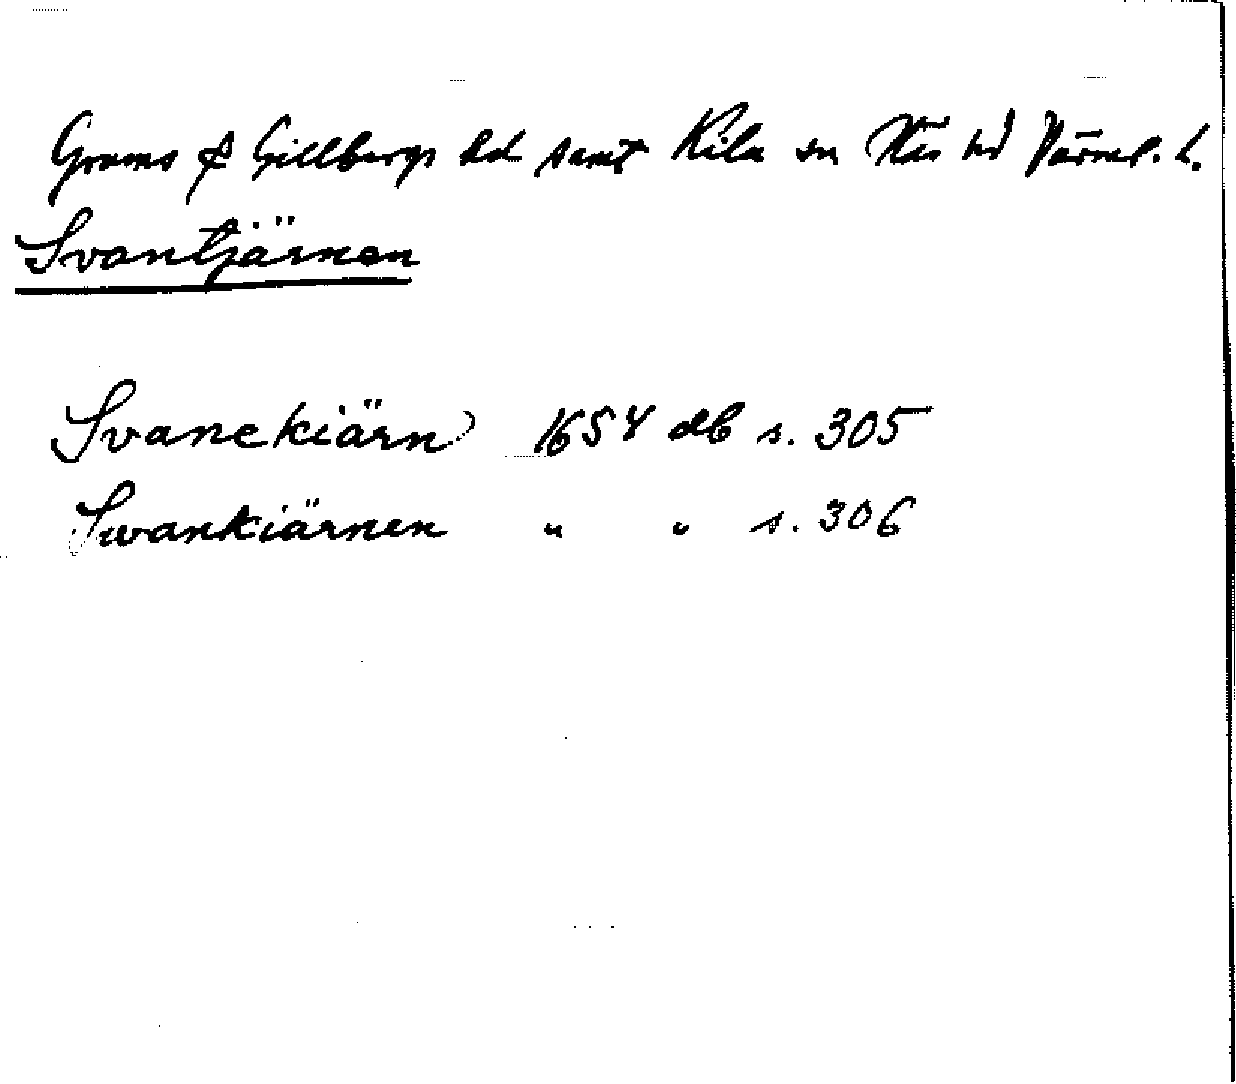 Grums & Gillbergs hd samt Kila sn Näs hd Värml. l.
Svantjärnen
Svanekiärn 1654 db s. 305
Swankiärnen " " s. 306